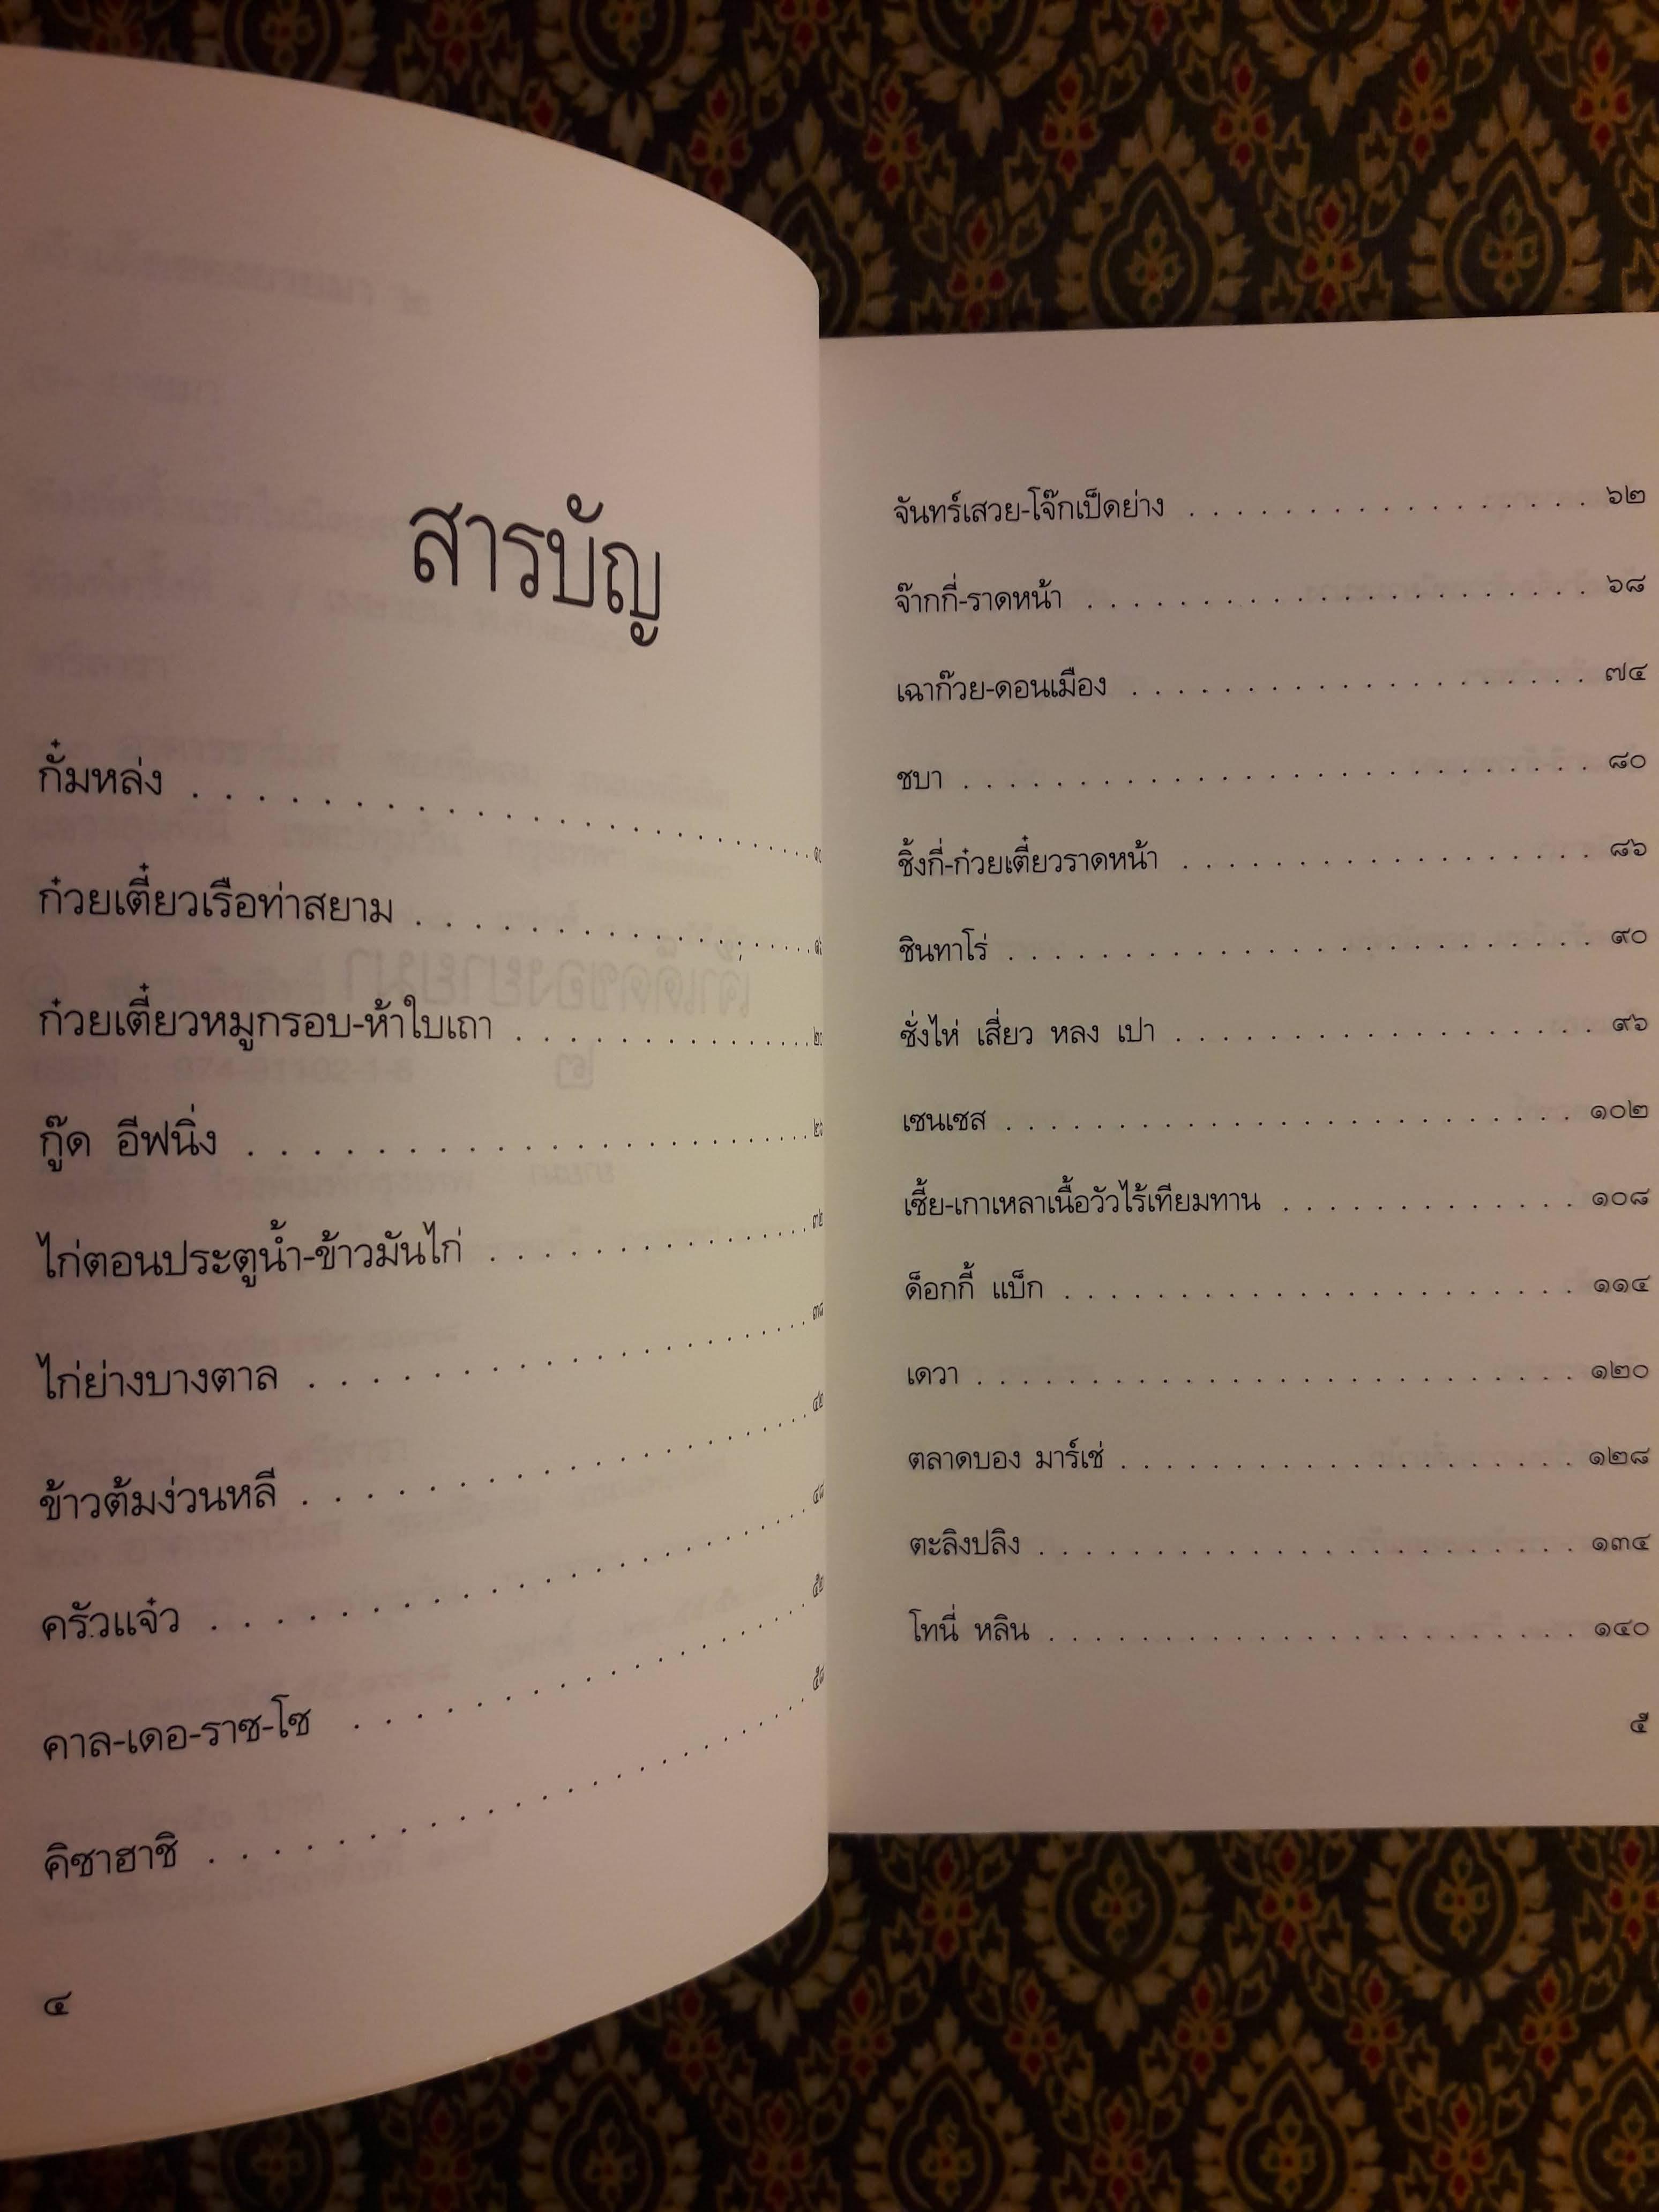 สารบัญ
กั๋มหล่ง
ก๋วยเตี๋ยวเรือท่าสยาม
ก๋วยเตี๋ยวหมูกรอบ-ห้าใบเถา
กู๊ด อีฟนิ่ง
ไก่ตอนประตูน้ำ-ข้าวมันไก่ ๓๒
ไก่ย่างบางตาล ๓๘
ข้าวต้มง่วนหลี ๔๒
ครัวแจ๋ว ๔๘
คาล-เดอ-ราซ-โซ ๕๒
คิซาฮาชิ ๕๘
๔
จันทร์เสวย-โจ๊กเป็ดย่าง ๖๒
จ๊ากกี่-ราดหน้า ๖๘
เฉาก๊วย-ดอนเมือง ๗๔
ชบา ๘๐
ชิ้งกี่-ก๋วยเตี๋ยวราดหน้า ๘๖
ชินทาโร่ ๙๐
ซั่งไห่ เสี่ยว หลง เปา ๙๖
เซนเซส ๑๐๒
เชี้ย-เกาเหลาเนื้อวัวไร้เทียมทาน ๑๐๘
ด็อกกี้ แบ็ก ๑๑๔
เดวา ๑๒๐
ตลาดบอง มาร์เช่ ๑๒๘
ตะลิงปลิง ๑๓๔
โทนี่ หลิน ๑๔๐
๕